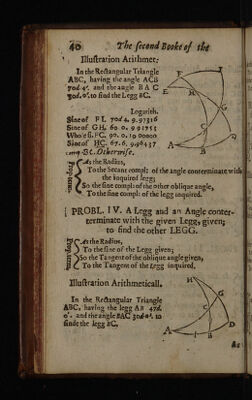 40 The second Booke of the
Illustration Arithmet:
In the Rectangular Triangle
ABC, having the angle ACB
70d 4'. and the angle BAC
30d. 0'. to find the Legg BC.
Logarith.
Sine of FI. 70d 4. 9.97316
Sine of GH. 60 0. 9 93753
Who e si. FC. 90. 0. 10 0000
Sine of HC. 67. 6. 9.96437
Otherwise.
As the Radius,
To the Secant compl: of the angle conterminate with
the inquired legg;
So the sine compl: of the other oblique angle,
To the sine compl: of the legg inquired.
PROBL. IV. A Legg and an Angle conter-
terminate with the given Legg, given;
to find the other LEGG.
As the Radius,
To the sine of the Legg given;
So the Tangent of the oblique angle given,
To the Tangent of the Legg inquired.
Illustration Arithmeticall.
In the Rectangular Triangle
ABC, having the legg AB 47d.
0'. and the angle BAC 30d 0'. to
finde the legg BC.
F
I
E
H
G
C
A
B
D
H
G
C
A
I
B
D